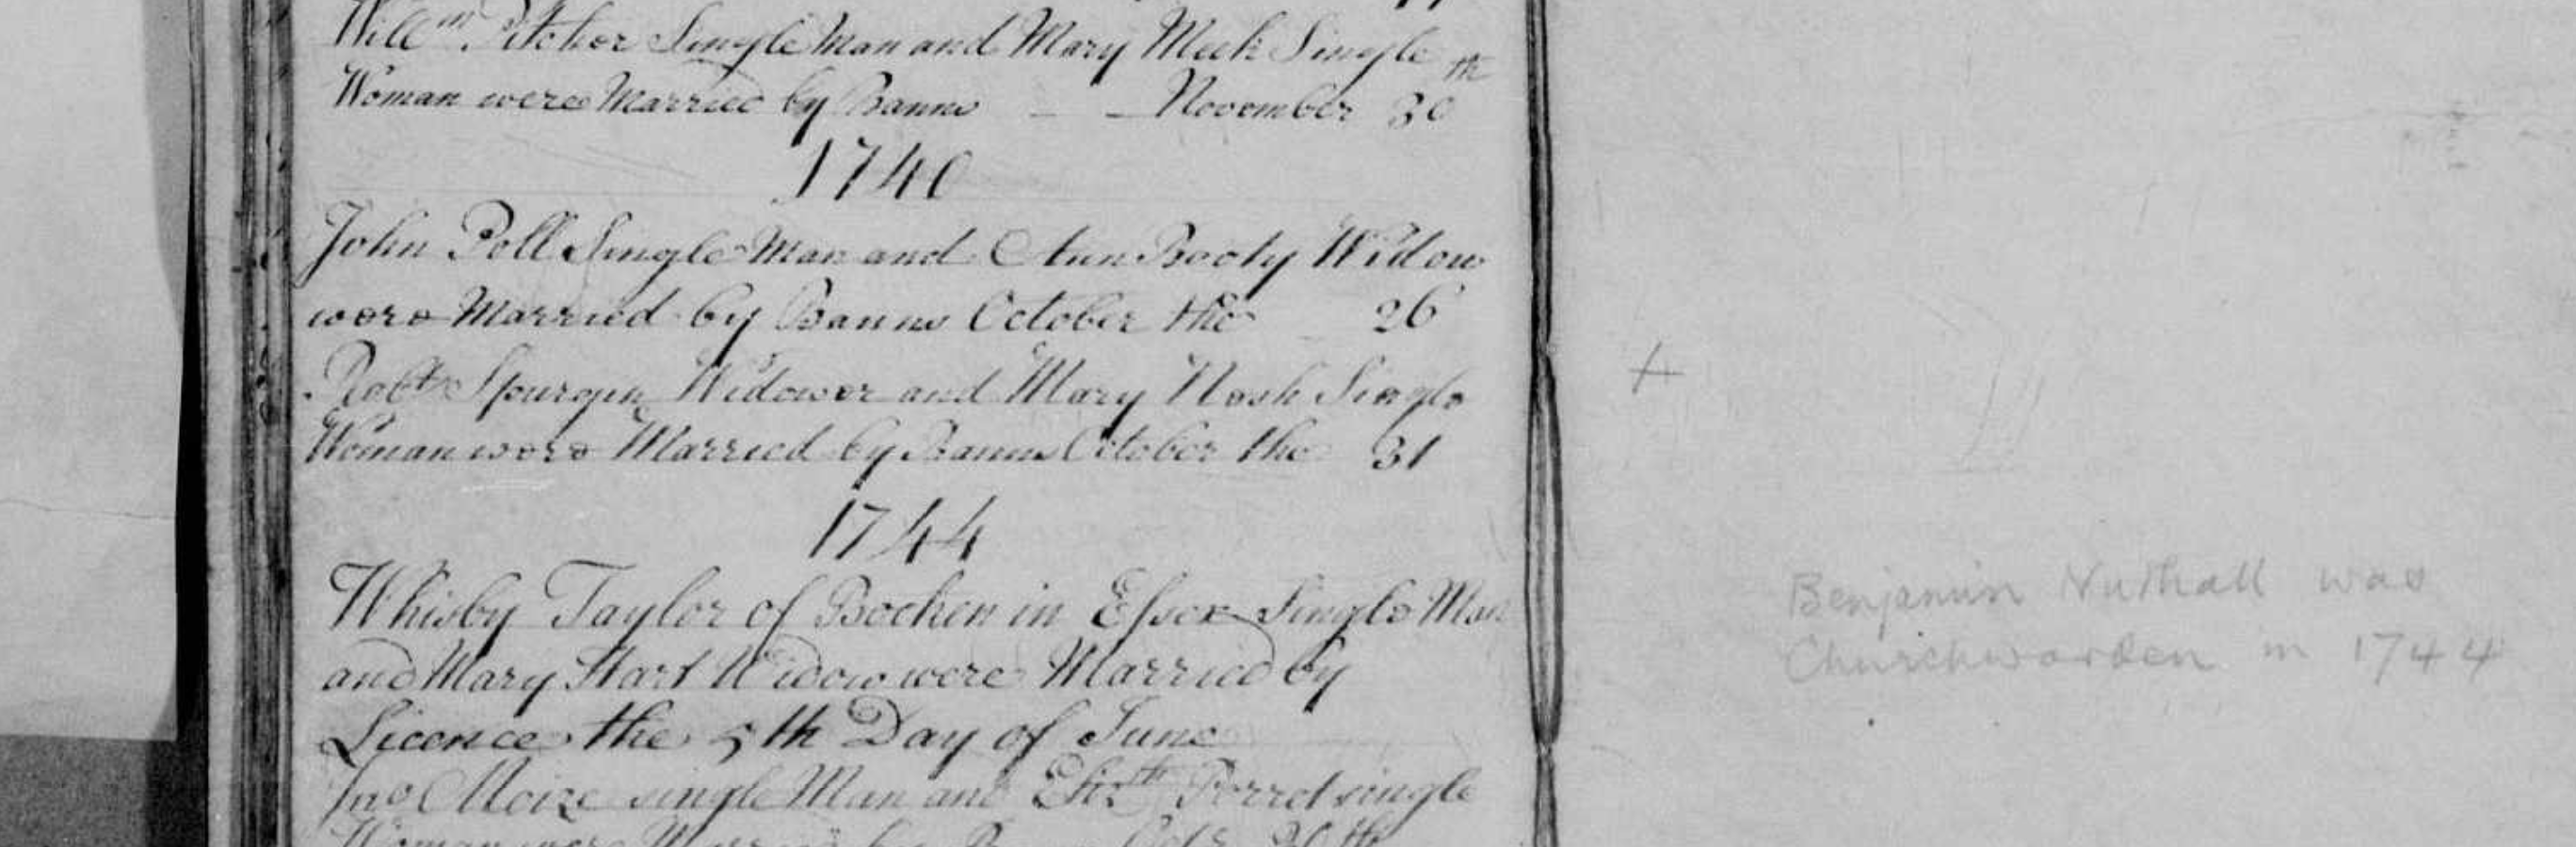 Willm Pitcher Single Man and Mary Meek Single
Woman were Married by Banns - - November 30th
1740
John Poll Single Man and Ann Booty Widow
were Married by Banns October the 26
Robt Spurgin Widower and Mary Nash Single
Woman were Married by Banns October the 31
1744
Whisby Taylor of Bocken in Essex Single Man
and Mary Start Widow were Married by
Licence the 5th Day of June
Jno Moize single Man and Elizth Porret single
Woman were Married by
Benjamin Nuthall was
Churchwarden in 1744